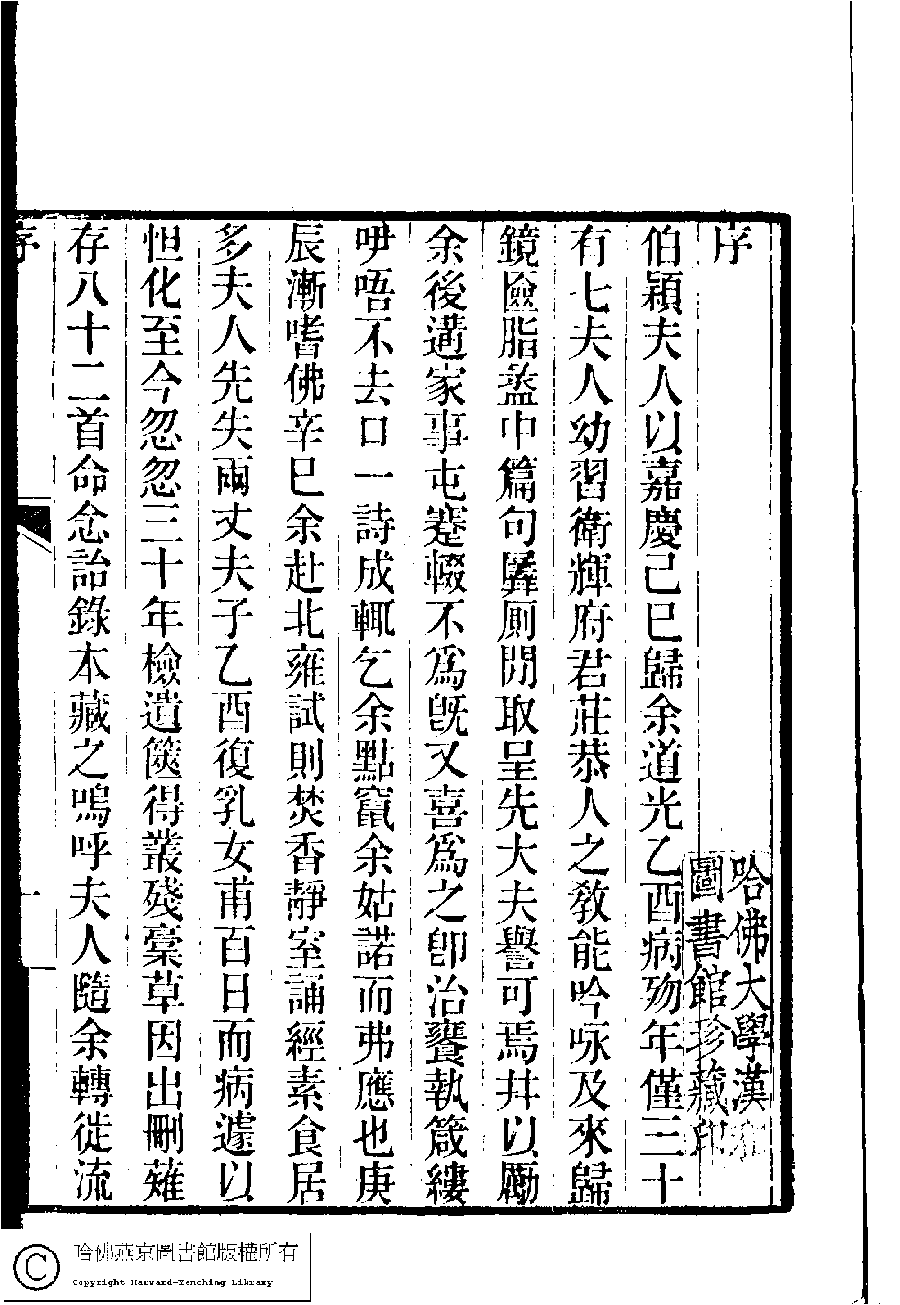 序
伯穎夫人以嘉慶己巳歸余道光乙酉病歿年僅三十
有七夫人幼習衛輝府君莊恭人之敎能吟咏及來歸
鏡匳脂盝中篇句羼厠閒取呈先大夫譽可焉幷以勵
余後遘家事屯蹇輟不爲旣又喜爲之卽治饔執箴縷
吚唔不去口一詩成輒乞余點竄余姑諾而弗應也庚
辰漸嗜佛辛巳余赴北雍試則焚香靜室誦經素食居
多夫人先失兩丈夫子乙酉復乳女甫百日而病遽以
怛化至今忽忽三十年檢遺篋得叢殘稾草因出刪薙
存八十二首命念詒錄本藏之嗚呼夫人隨余轉徙流
序
一
哈佛大學漢和
圖書館珍藏印
哈佛燕京圖書館版權所有
Copyright Harvard-Yenching Library